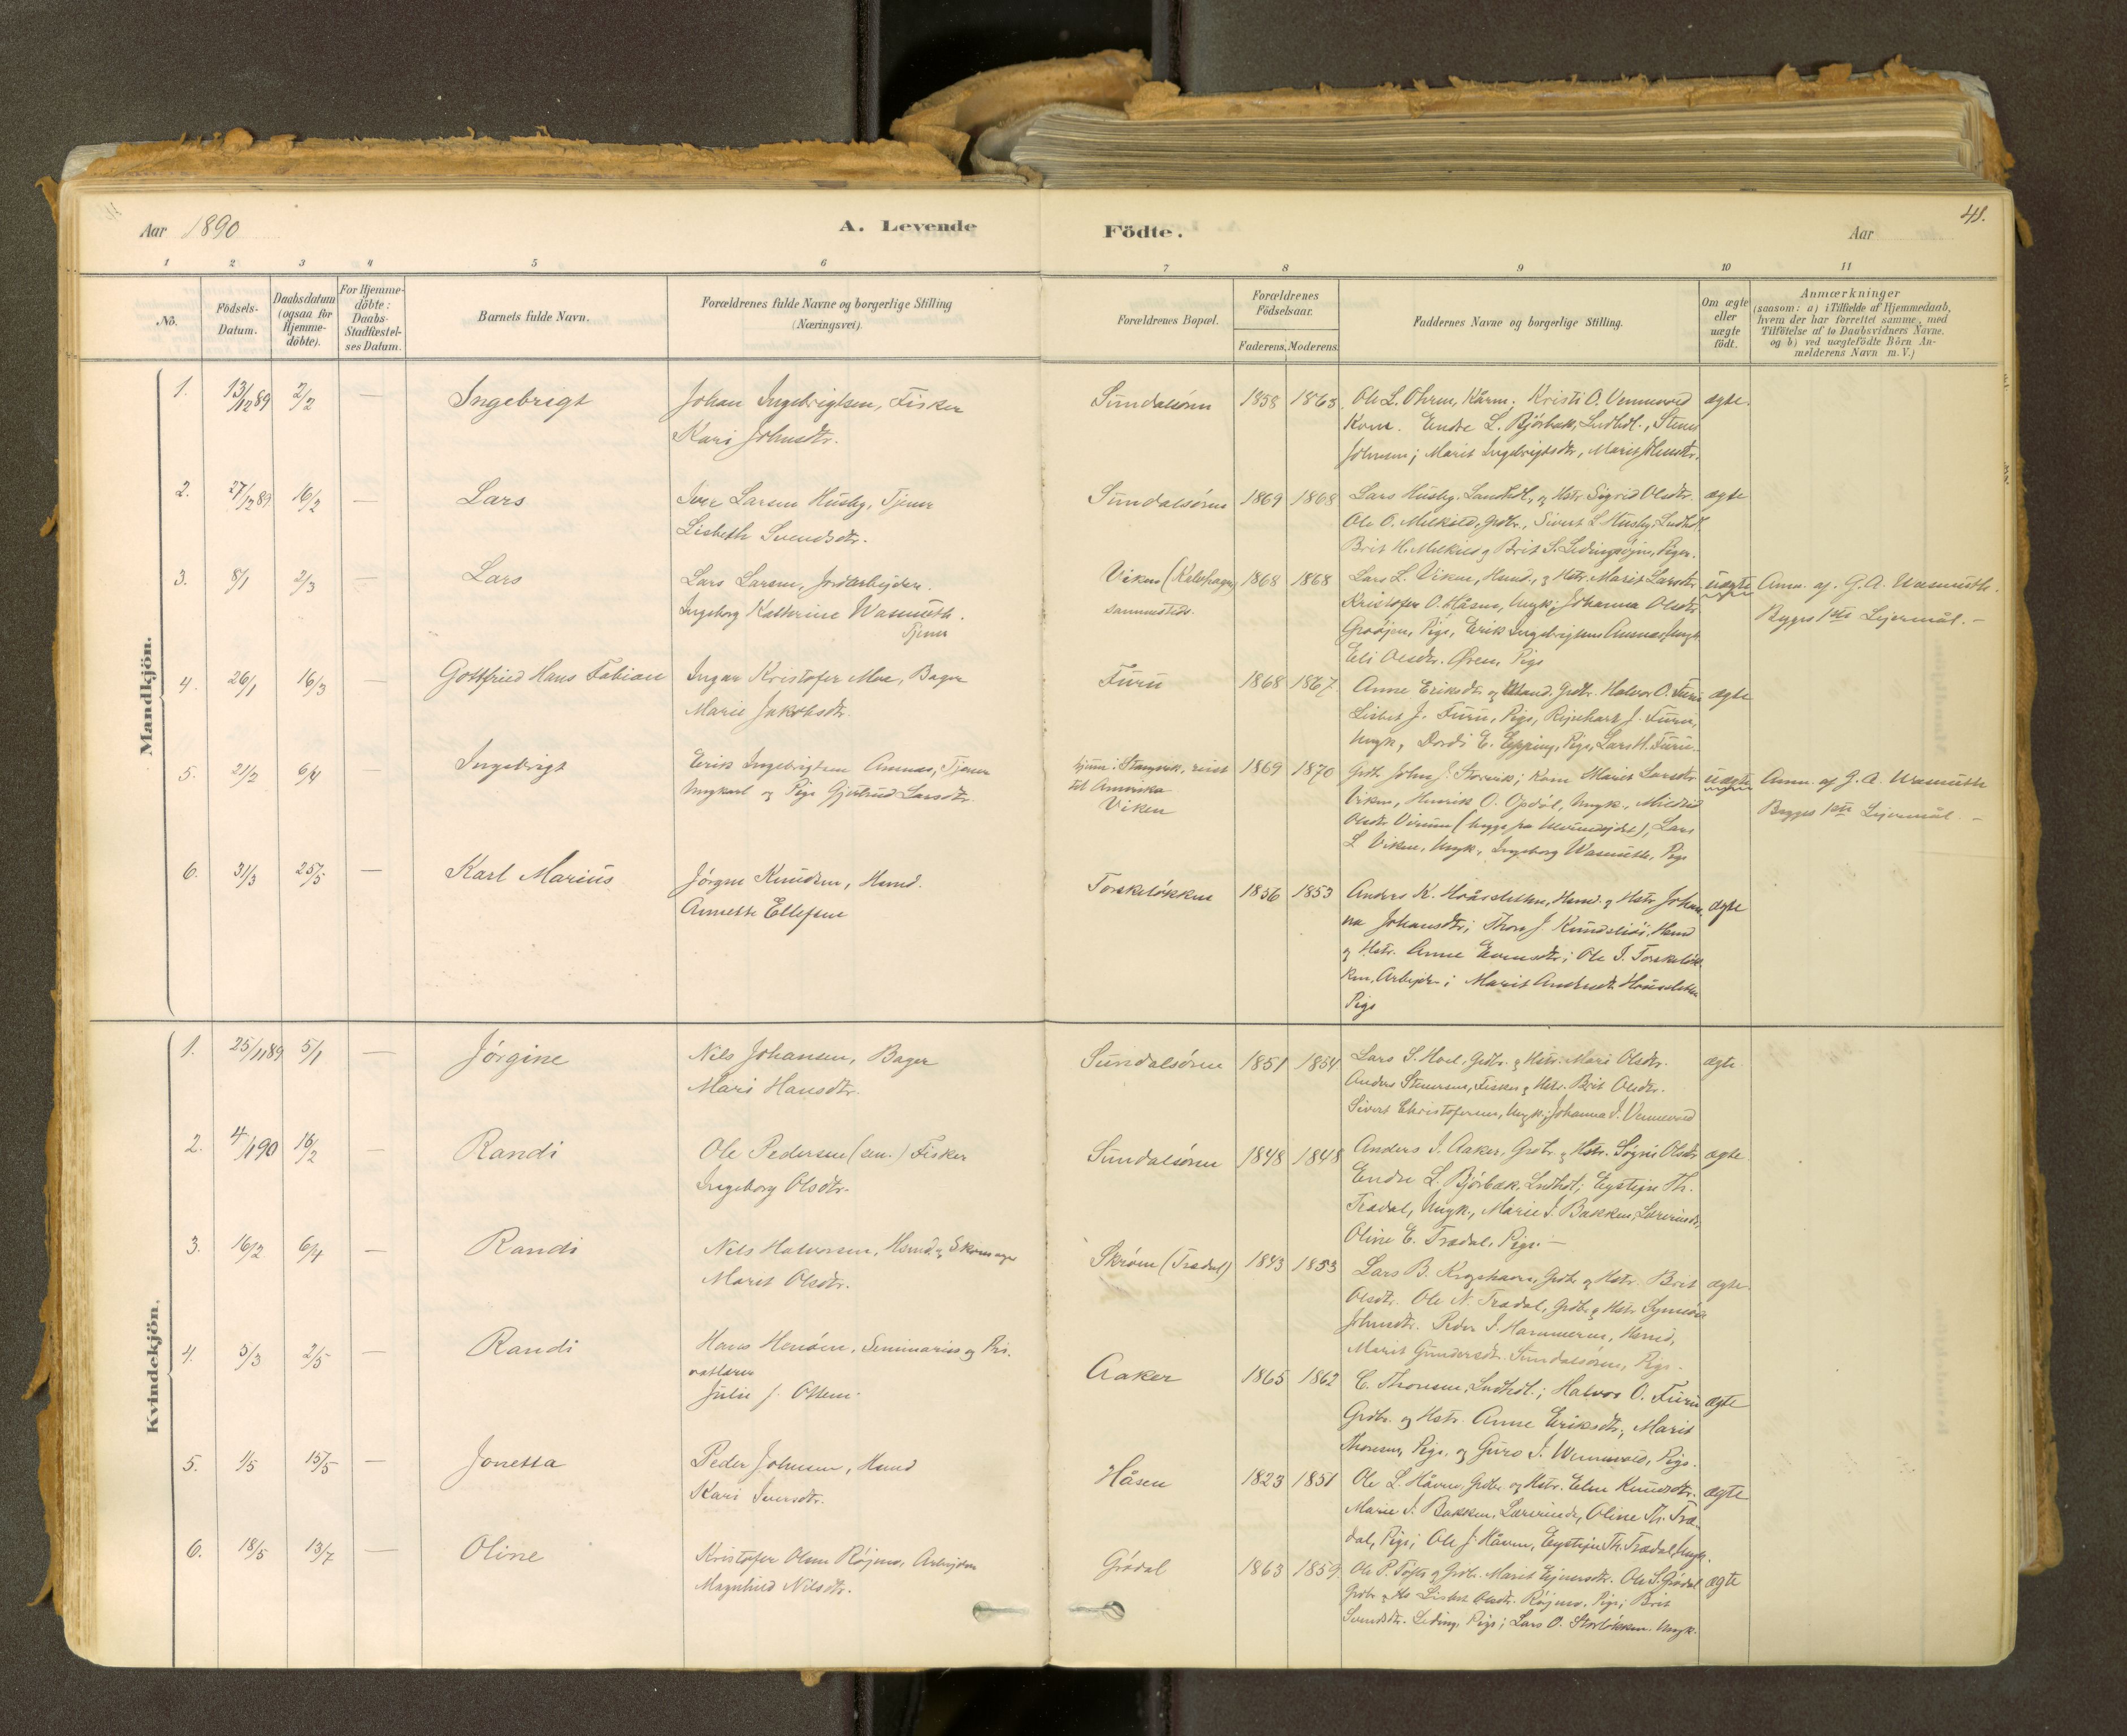 Aar 1890
A. Levende
Födte.
Aar
41.
1 2 3 4 5 6 7 8 9 10 11
No.
Födsels-
Datum.
Daabsdatum
(ogsaa for
Hjemme-
döbte).
For Hjemme-
döbte:
Daabs-
Stadfæstel-
ses Datum.
Barnets fulde Navn.
Forældrenes fulde Navne og borgerlige Stilling
(Næringsvei).
Forældrenes Bopæl.
Forældrenes
Födselsaar.
Faderens. Moderens.
Faddernes Navne og borgerlige Stilling.
Om ægte
eller
uægte
födt.
Anmærkninger
(saasom: a) i Tilfælde af Hjemmedaab,
hvem der har forrettet samme, med
Tilföielse af to Daabsvidners Navne.
og b) ved uægtefödte Börn An-
melderens Navn m.V.)
Mandkjön.
1. 13/12 89 2/2 — Ingebrigt
Johan Ingebrigtsen, Fisker
Kari Johnsdtr.
Sundalsören 1858 1863
Ole L. Ohren, Kårm. Kristi O. Vennevold
Kone. Endre L. Bjørbak, Lndhdl., Stener
Johnsen; Marit Ingebrigtsdtr, Marit Johnsdtr.
ægte.
2. 27/12 89 16/2 — Lars
Iver Larsen Husby, Tjener
Lisbeth Svendsdtr.
Sundalsören 1869 1868
Lars Husby, Landhdl., og Hstr. Sigrid Olsdtr.
Ole O. Melkild, Grdbr., Sivert L. Husby, Lndhdl.
Brit H. Melkild og Brit S. Ledingsøjen, Piger.
ægte
3. 8/1 2/3 — Lars
Lars Larsen, Jordarbejder.
Ingeborg Kathrine Wasmuth.
Tjener
Viken (Kalvhagen)
sammesteds.
1868 1868
Lars L. Viken, Husmd., og Hstr. Marit Larsdtr.
Kristofer O. Håsen, Ungk., Johanna Olsdtr
Grøøjen, Pige, Erik Ingebrigtsen Ammas, Ungk.
Eli Olsdtr. Øren, Pige
uægte
Anm. af G. A. Wasmuth.
Begges 1ste Lejermål. —
4. 26/1 16/3 — Gottfried Hans Fabian
Ingar Kristofer Moe, Bager
Marie Jakobsdtr.
Furu 1868 1867
Anne Eriksdtr. og Mand. Grdbr. Halvor O. Furu
Lisbet J. Furu, Pige, Rejnhart J. Furu,
Ungk, Dordi E. Epping, Pige, Lars H. Furu.
ægte
5. 21/2 6/4 Ingebrigt
Erik Ingebrigtsen Ammas, Tjener
Ungkarl og Pige Gjertrud Larsdtr.
til Amerika
Viken
1869 1870
Grdb. John J. Storvik; Kone Marit Larsdtr
Viken, Henrik O. Opdøl, Ungk., Mildrid
L Viken, Ungk., Ingeborg Wasmuth, Pige
uægte
Anm. af G. A. Wasmuth
Begges 1ste Lejermål. —
6. 31/3 25/5 — Karl Marius
Jørgen Knudsen, Husmd.
Annette Ellefsen
Torskeløkken 1856 1853
Anders K. Hoåsletten, Husmd. og Hstr. Johan-
na Johansdtr; Thore J. Knudsliøi, Husmd
og Hstr. Anne Evensdtr; Ole J. Torskeløk-
ken, Arbejder; Marit Andersdt. Hoåsletten
Pige
ægte
Kvindekjön.
1. 25/11 89 5/1 — Jörgine
Nils Johansen, Bager
Mari Hansdtr.
Sundalsören 1851 1854
Lars S. Hoel, Grdbr. og Hstr. Mari Olsdtr.
Anders Stenersen, Fisker og Hstr. Brit Olsdtr.
Sivert Christofersen, Ungk.; Johanna J. Vennevold
ægte
2. 4/1 90 16/2 — Randi
Ole Pedersen (sen.) Fisker
Ingeborg Olsdtr.
Sundalsören 1848 1848
Anders J. Aaker, Grdbr. og Hstr. Sigri Olsdtr
Endre L. Bjørbak, Lndhdl; Eystejn Th.
Trædal, Ungk., Marie J. Bakken, Lærerinde,
Oline E. Trædal, Pige. —
ægte
3. 16/2 6/4 — Randi
Nils Halvorsen, Husmd. og Skomager
Marit Olsdtr.
Skrøen (Trædal) 1843 1853
Lars B. Krogshavn, Grdbr. og Hstr. Brit
Olsdtr. Ole N. Trædal, Grdbr. og Hstr. Synnøve
Johnsdtr. Peder J. Hammeren, Husmd,
Marit Gundersdtr. Sundalsören, Pige.
ægte.
4. 5/3 2/5 — Randi
Hans Hensøen, Seminarist og Pri-
vatlærer
Julie J. Ottem.
Aaker 1865 1862
C. Thoresen, Lndhdl.; Halvor O. Furu
Grdbr. og Hstr. Anne Eriksdtr., Marit
Thoresen, Pige, og Guro J. Wennevold, Pige.
ægte
5. 1/5 15/5 — Jonetta
Peder Johnsen, Husmd
Kari Iversdtr.
Håsen 1823 1851
Ole L. Håven, Grdbr. og Hstr. Elen Knudsdtr.
Marie J. Bakken, Lærerinde, Oline Th. Træ-
dal, Pige; Ole J. Håven, Eystejn Th. Trædal, Ungk.
ægte
6. 18/5 13/7 — Oline
Kristofer Olsen Røjmo, Arbejder
Magnhild Nilsdtr.
Grödal 1863 1859
Ole P. Töfte og Grdbr. Marit Ejnersdtr. Ole S. Grödal
Grdbr. og Hs Lisbet Olsdtr. Røjmo, Pige; Brit
Svendsdtr. Leding, Pige; Lars O. Storløkken Ungk.
ægte